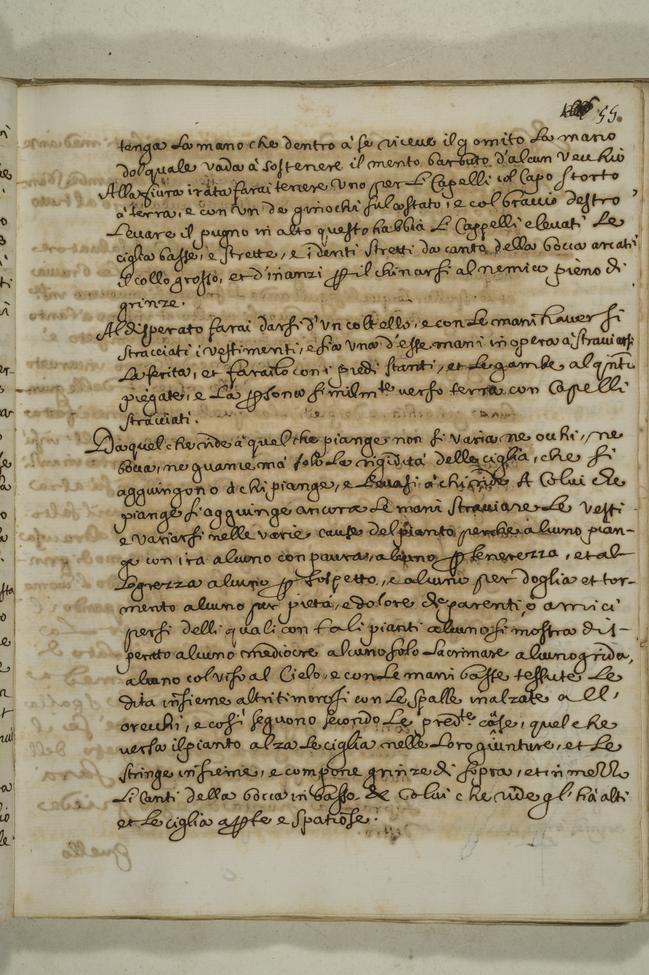 55.
tenga La mano che dentro à se riceue il gomito La mano
del quale vada à sostenere il mento barbuto d'alcun vecchio
Alla figura irata farai tenere uno per Li Capelli col Capo storto
à terra, e con un de ginochi sul costato, e col braccio destro
Leuare il pugno in alto questo habbia Li Cappelli eleuati Le
ciglia basse, e strette, e i denti stretti da canto della bocca arcati
il collo grosso, et d'inanzi p il chinarsi al nemico pieno di
grinze.
Al disperato farai darsi d'un coltello, e con Le mani hauersi
stracciati i vestimenti, e sia una d'esse mani in opera à stracciarsi
La ferita, et farailo con i piedi stanti, et Le gambe alqnto
piegate, e La psona similmte verso terra con Capelli
stracciati.
Da quel che ride à quel che piange non si varia ne occhi, ne
bocca, ne guancie, mà solo La rigidità delle ciglia, che si
aggiungono à chi piange, e Leuasi à chi ride A Colui che
piange s'aggiunge ancora Le mani stracciare Le vesti
e variarsi nelle varie cause del pianto perche alcuno pian-
ge con ira alcuno con paura, alcuno p tenerezza, et al-
Legrezza alcuno p sospetto, e alcuno per doglia et tor-
mento alcuno pur pietà, e dolore de parenti, o amici
persi delli quali con tali pianti alcuno si mostra dis-
perato alcuno mediocre alcuno solo Lacrimare alcuno grida,
alcuno col viso al Cielo, e con Le mani basse tessute Le
dita insieme altri timorosi con Le spalle inalzate all'
orecchi, e così seguono secondo Le predte cose, quel che
versa il pianto alza Le ciglia nelle Loro giunture, et Le
stringe insieme, e compone grinze di sopra, et in mezzo
Li Canti della bocca in basso Colui che ride gl'hà alti
et Le ciglia apte e spatiose.
quello